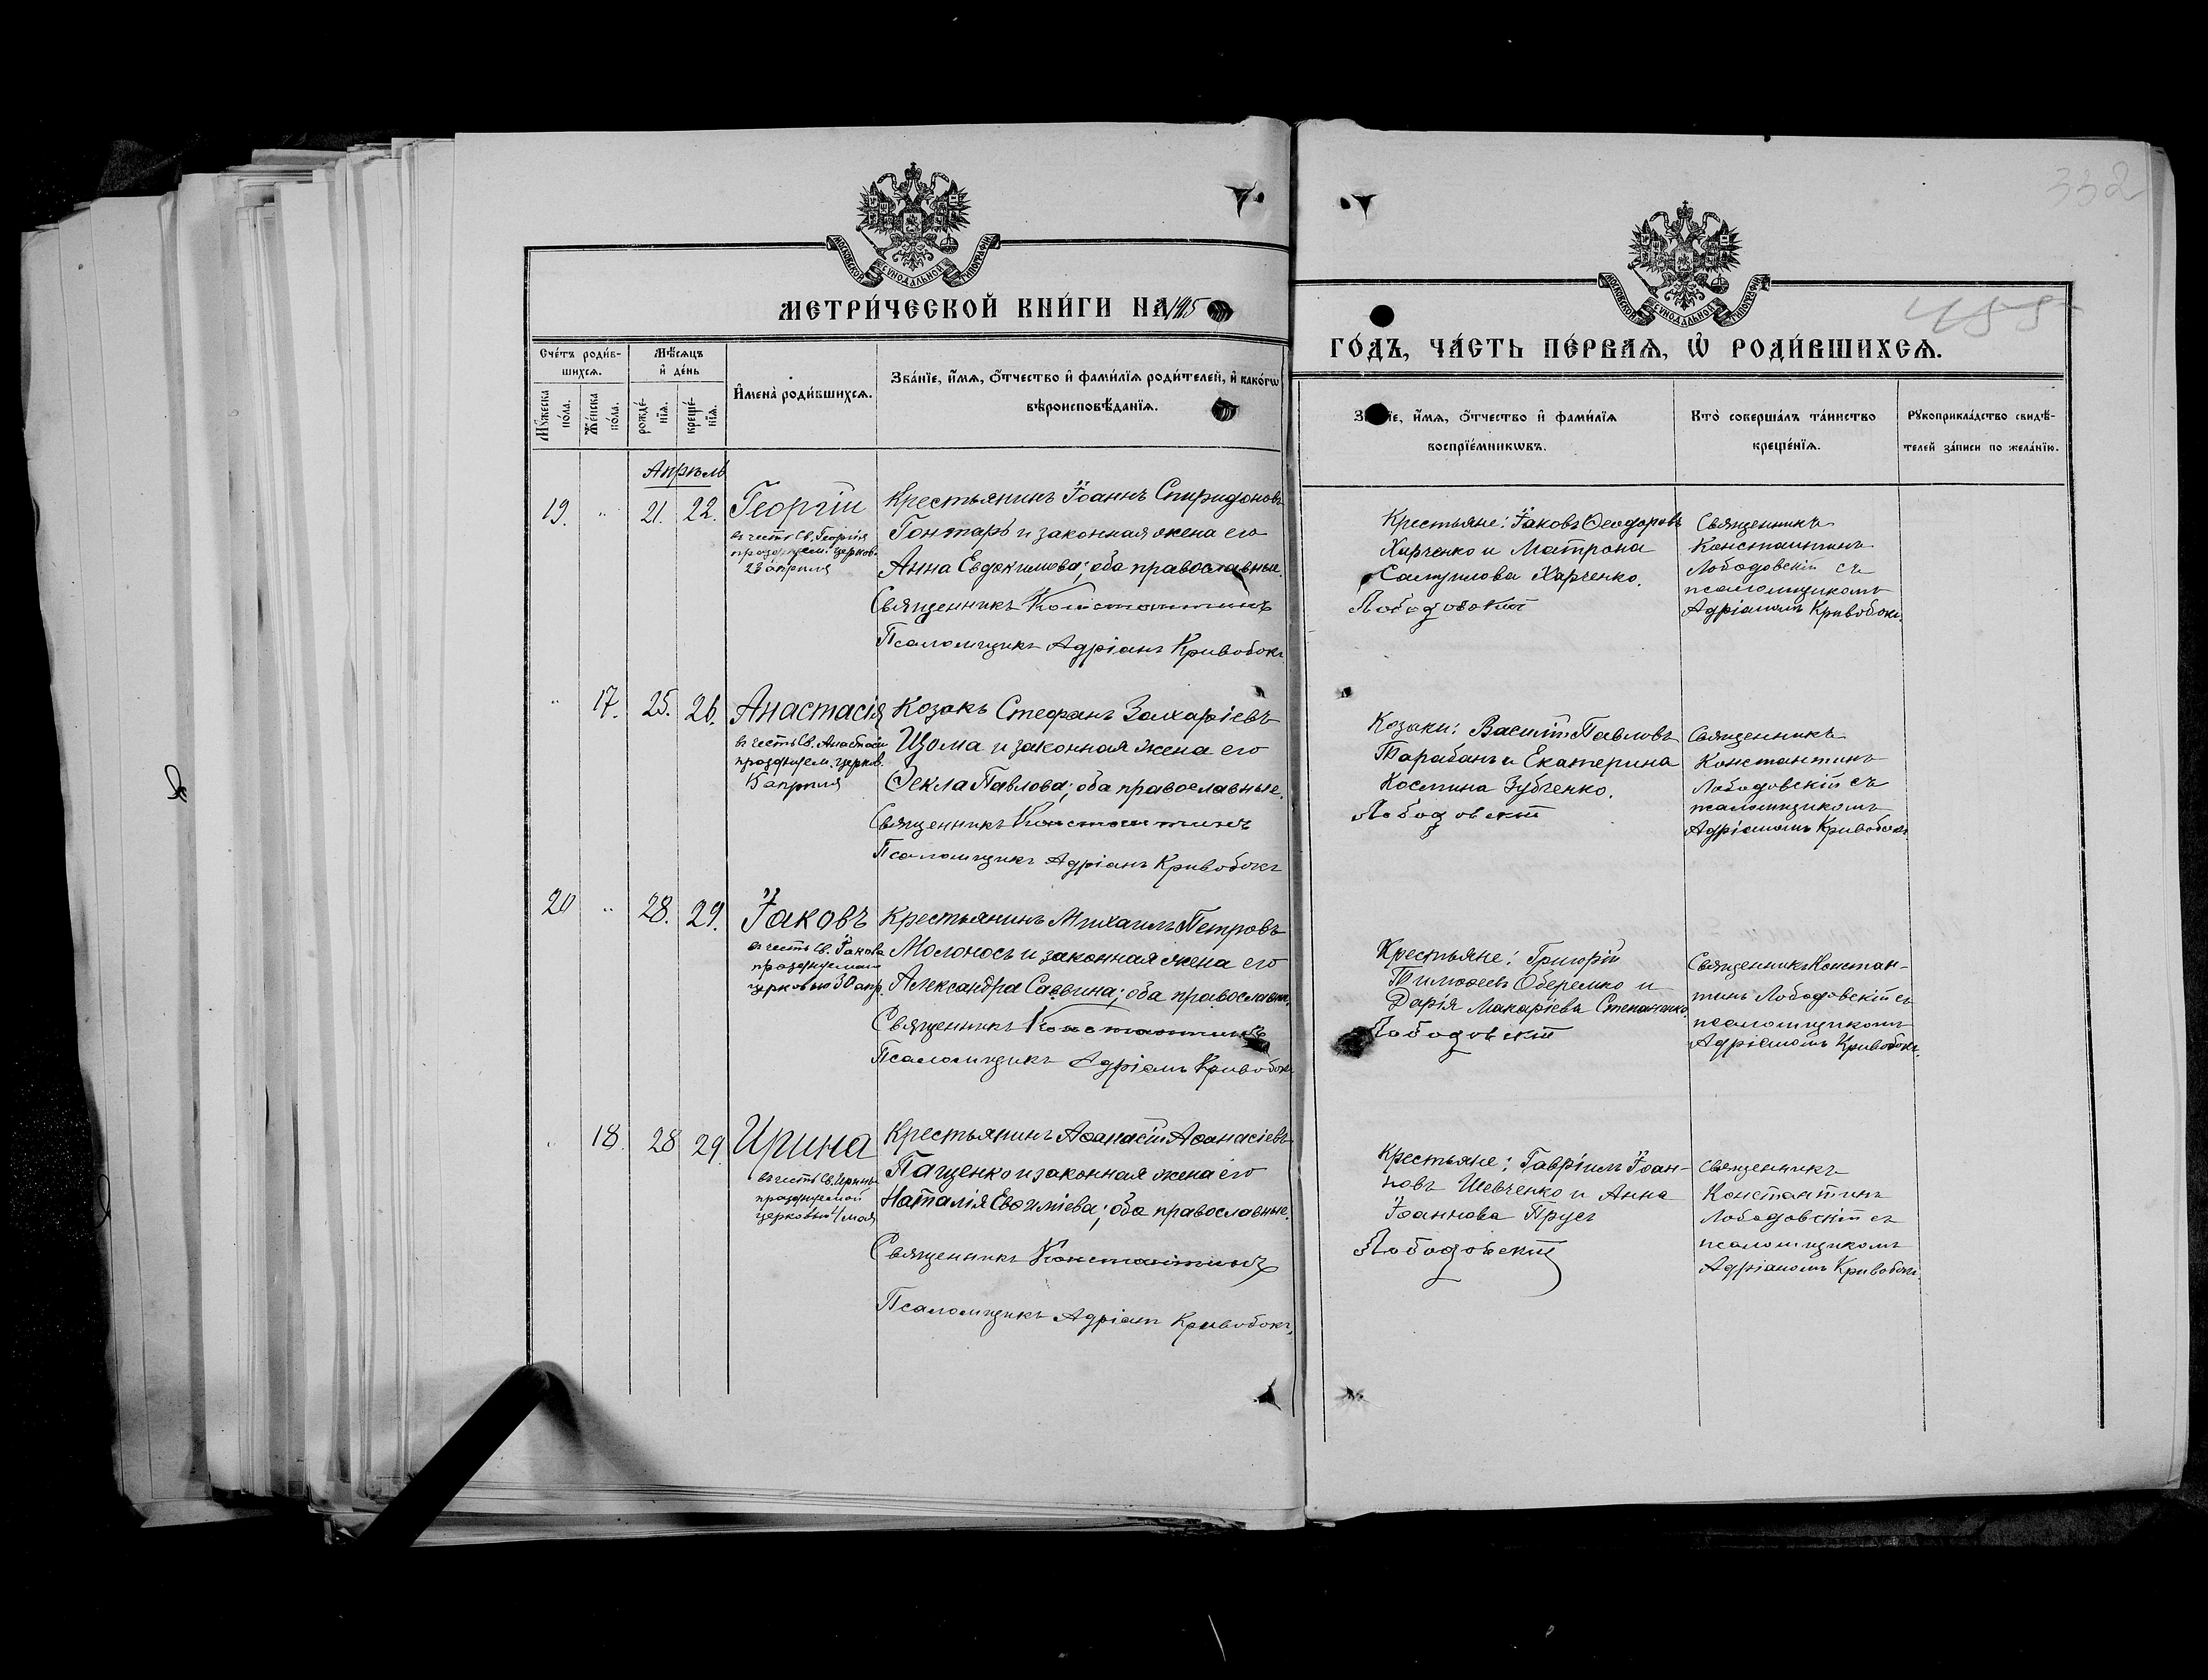 332
МОСКОВСКОЙ СУНОДАЛЬНОЙ ТИПОГРАФІИ
МОСКОВСКОЙ СУНОДАЛЬНОЙ ТИПОГРАФІИ
МЕТРИ́ЧЕСКОЙ КНИ́ГИ НА 1915
ГО́ДЪ, ЧА́СТЬ ПЕ́РВАѦ, Ѡ҆ РОДИ́ВШИХСѦ.
Сче́тъ роди́вшихсѧ.
Мꙋ́жеска по́ла.
Же́нска по́ла.
Мѣ́сѧцъ и҆ де́нь
рожде́нїѧ.
креще́нїѧ.
И҆мена̀ роди́вшихсѧ.
Зва́нїе, и҆́мѧ, ѻ҆́тчество и҆ фами́лїѧ роди́телей, и҆ како́гѡ
вѣроисповѣ́данїѧ.
и҆́мѧ, ѻ҆́тчество и҆ фами́лїѧ
воспрїе́мникѡвъ.
Кто̀ соверша́лъ та́инство
креще́нїѧ.
Рꙋкоприкла́дство свидѣ́-
телей за́писи по жела́нїю.
Апрѣль
19. " 21. 22. Георгій
въ честь Св. Георгія
празднуем. церков.
23 апрѣля
Крестьянинъ Іоаннъ Спиридоновъ
Гонтарь и законная жена его
Анна Евдокимова; оба православные.
Священникъ Константинъ
Псаломщикъ Адріанъ Кривобокъ
Крестьяне: Іаковъ Ѳеодоровъ
Харченко и Матрона
Самуилова Харченко.
Лободовскій
Священникъ
Константинъ
Лободовскій съ
псаломщикомъ
Адріаномъ Кривобокъ.
" 17. 25. 26. Анастасія
въ честь Св. Анастасіи
празднуем. церков.
15 апрѣля
Козакъ Стефанъ Захаріевъ
Цюма и законная жена его
Ѳекла Павлова; оба православные.
Священникъ Константинъ
Псаломщикъ Адріанъ Кривобокъ
Козаки: Василій Павловъ
Тарабанъ и Екатерина
Космина Зубченко.
Лободовскій
Священникъ
Константинъ
Лободовскій съ
псаломщикомъ
Адріаномъ Кривобокъ
20 " 28. 29. Іаковъ
въ честь Св. Іакова
празднуемаго
церковью 30 апр.
Крестьянинъ Михаилъ Петровъ
Молоносъ и законная жена его
Александра Саввина; оба православн.
Священникъ Константинъ
Псаломщикъ Адріанъ Кривобокъ
Крестьяне: Григорій
Тимоѳеевъ Оберемко и
Дарія Макаріева Степаненко.
Лободовскій
Священникъ Констан-
тинъ Лободовскій съ
псаломщикомъ
Адріаномъ Кривобокъ.
" 18. 28 29. Ирина
въ честь Св. Ирины
празднуемой
церковью 4/мая
Крестьянинъ Аѳанасій Аѳанасіевъ
Пащенко и законная жена его
Наталія Евѳиміева; оба православные.
Священникъ Константинъ
Псаломщикъ Адріанъ Кривобокъ.
Крестьяне: Гавріилъ Іоан-
новъ Шевченко и Анна
Іоаннова Прусъ
Лободовскій
Священникъ
Константинъ
Лободовскій съ
псаломщикомъ
Адріаномъ Кривобокъ.